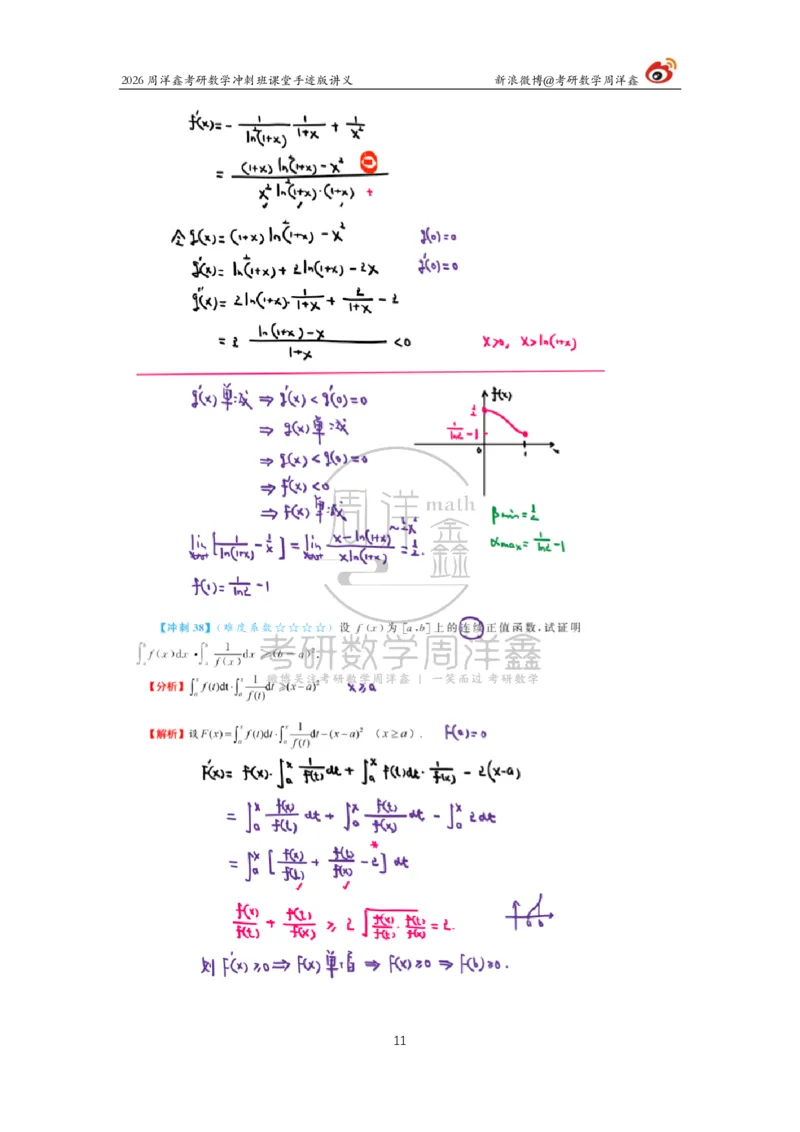 2026 周洋鑫考研数学冲刺班课堂手迹版讲义 新浪微博@考研数学周洋鑫
f'(x)=-1/(ln²(1+x))·1/(1+x)+1/x²
=((1+x)ln²(1+x)-x²)/(x²ln²(1+x)·(1+x)) ⊖ +
令g(x)=(1+x)ln²(1+x)-x² g(0)=0
g'(x)=ln²(1+x)+2ln(1+x)-2x g'(0)=0
g''(x)=2ln(1+x)·1/(1+x)+2/(1+x)-2
=2 (ln(1+x)-x)/(1+x) <0 x>0, x>ln(1+x)
g'(x)单减⇒g'(x)<g'(0)=0
⇒g(x)单减
⇒g(x)<g(0)=0
⇒f'(x)<0
⇒f(x)单减
lim x→0+ [1/ln(1+x)-1/x]=lim x→0+ (x-ln(1+x))/(xln(1+x))=1/2. ~1/2x²
f(1)=1/ln2-1
f(x)
1/2
1/ln2-1
0 1 x
βmin=1/2
αmax=1/ln2-1
周洋鑫 math
【冲刺 38】(难度系数☆☆☆☆) 设 f(x)为[a,b]上的连续正值函数,试证明
∫ₐᵇ f(x)dx·∫ₐᵇ 1/f(x) dx≥(b-a)².
考研数学周洋鑫
微博关注考研数学周洋鑫 | 一笑而过 考研数学
【分析】∫ₐˣ f(t)dt·∫ₐˣ 1/f(t) dt≥(x-a)² x≥a
【解析】设F(x)=∫ₐˣ f(t)dt·∫ₐˣ 1/f(t) dt-(x-a)² (x≥a). F(a)=0
F'(x)=f(x)·∫ₐˣ 1/f(t) dt+∫ₐˣ f(t)dt·1/f(x)-2(x-a)
=∫ₐˣ f(x)/f(t) dt+∫ₐˣ f(t)/f(x) dt-∫ₐˣ 2dt
=∫ₐˣ [f(x)/f(t)+f(t)/f(x)-2]dt
f(x)/f(t)+f(t)/f(x)≥2√(f(x)/f(t)·f(t)/f(x))=2.
a b
则F'(x)≥0⇒F(x)单增⇒F(x)≥0⇒F(b)≥0.
11